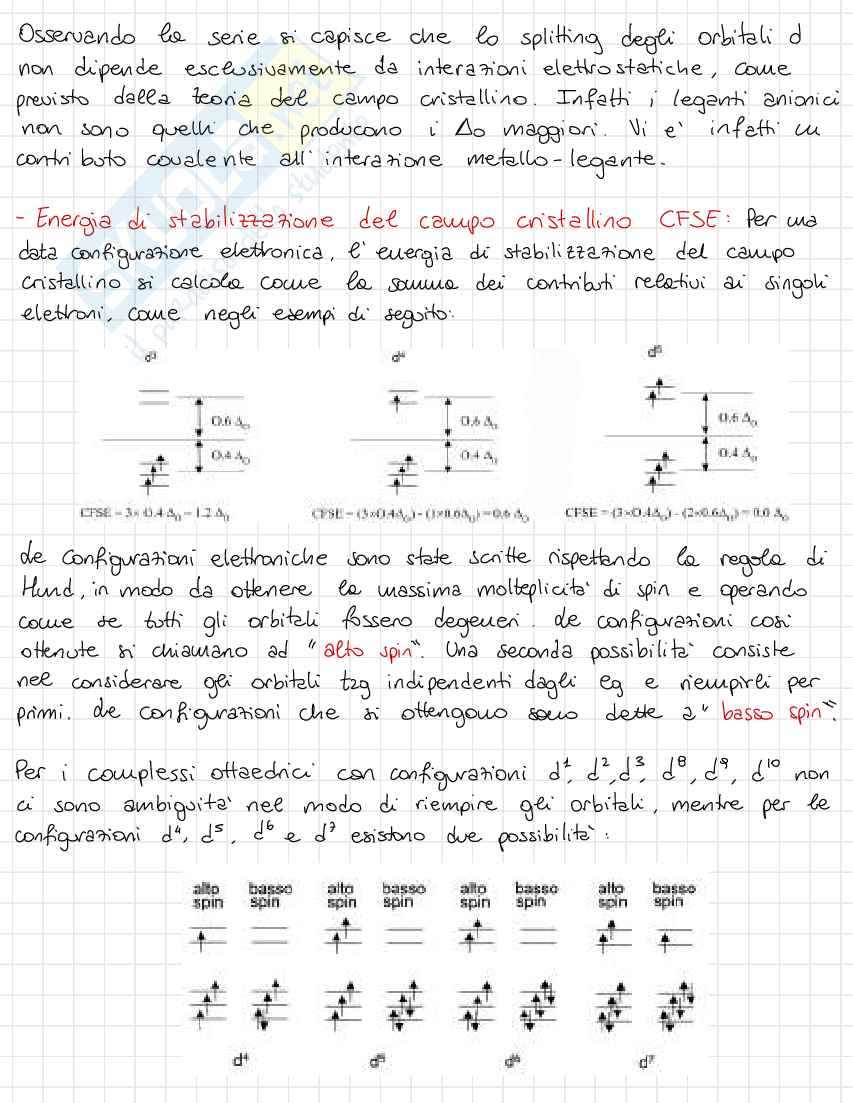 Osservando la serie si capisce che lo splitting degli orbitali d
non dipende esclusivamente da interazioni elettrostatiche, come
previsto dalla teoria del campo cristallino. Infatti i leganti anionici
non sono quelli che producono i Δo maggiori. Vi e' infatti un
contributo covalente all'interazione metallo-legante.
- Energia di stabilizzazione del campo cristallino CFSE: Per una
data configurazione elettronica, l'energia di stabilizzazione del campo
cristallino si calcola come la somma dei contributi relativi ai singoli
elettroni, come negli esempi di seguito:
d³ d⁴ d⁵
0.6 Δ₀ 0.6 Δ₀ 0.6 Δ₀
0.4 Δ₀ 0.4 Δ₀ 0.4 Δ₀
CFSE = 3× 0.4 Δ₀ = 1.2 Δ₀ CFSE = (3×0.4Δ₀) - (1×0.6Δ₀) = 0.6 Δ₀ CFSE = (3×0.4Δ₀) - (2×0.6Δ₀) = 0.0 Δ₀
Le configurazioni elettroniche sono state scritte rispettando la regola di
Hund, in modo da ottenere la massima molteplicita' di spin e operando
come se tutti gli orbitali fossero degeneri. Le configurazioni cosi'
ottenute si chiamano ad "alto spin". Una seconda possibilita' consiste
nel considerare gli orbitali t2g indipendenti dagli eg e riempirli per
primi. Le configurazioni che si ottengono sono dette a "basso spin".
Per i complessi ottaedrici con configurazioni d¹, d², d³, d⁸, d⁹, d¹⁰ non
ci sono ambiguita' nel modo di riempire gli orbitali, mentre per le
configurazioni d⁴, d⁵, d⁶ e d⁷ esistono due possibilita':
alto basso alto basso alto basso alto basso
spin spin spin spin spin spin spin spin
d⁴ d⁵ d⁶ d⁷